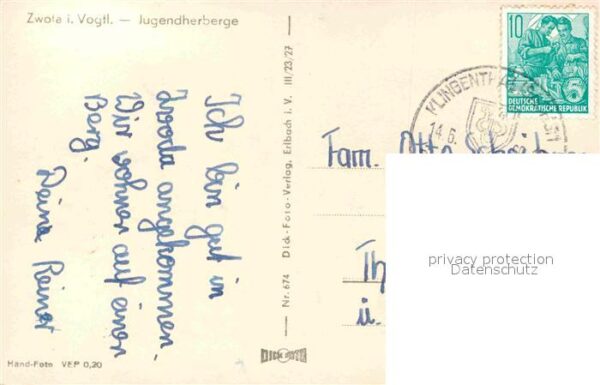 Zwota i. Vogtl. — Jugendherberge
Ich bin gut in
Zwota angekommen.
Wir wohnen auf einen
Berg.
Deine Reiner
Hand-Foto VEP 0,20
Nr. 674 Dick-Foto-Verlag, Erlbach i. V. III/23/27
DICK FOTO
10
DEUTSCHE
DEMOKRATISCHE REPUBLIK
KLINGENTHAL
14.6.
Fam. Otto
Th
u.
privacy protection
Datenschutz